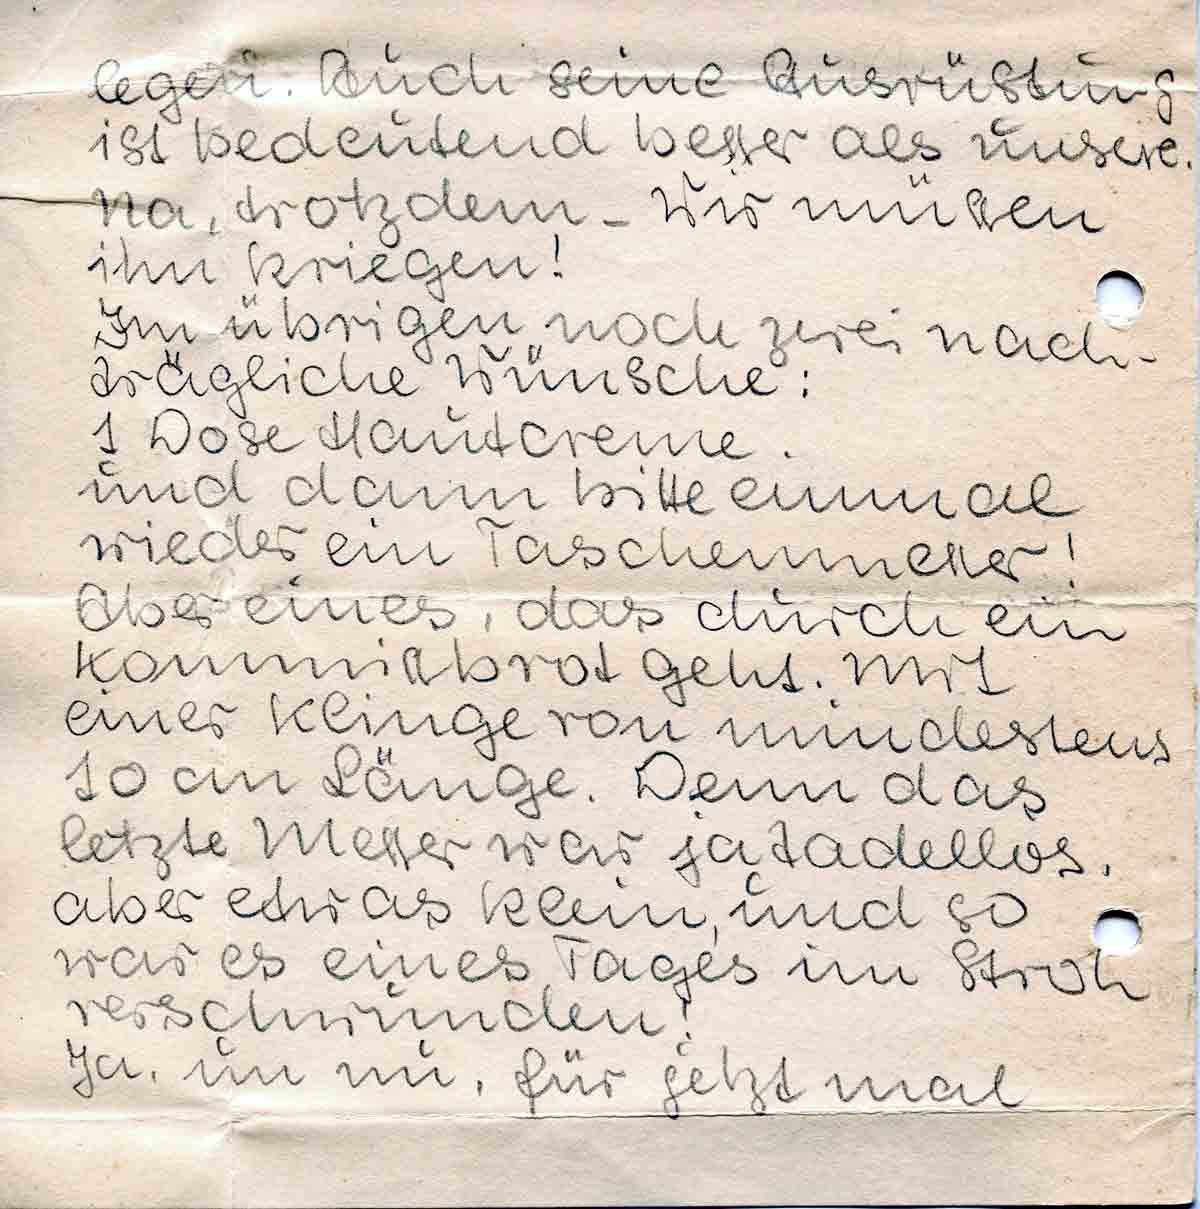 legen. Auch seine Ausrüstung
ist bedeutend besser als unsere.
Na, trotzdem – Wir müssen
ihn kriegen!
Im übrigen noch zwei nach-
trägliche Wünsche:
1 Dose Hautcreme.
und dann bitte einmal
wieder ein Taschenmesser!
Aber eines, das durch ein
Kommißbrot geht. Mit
einer Klinge von mindestens
10 cm Länge. Denn das
letzte Messer war ja tadellos,
aber etwas klein, und so
war es eines Tages im Stroh
verschwunden!
Ja, un nu, für jetzt mal